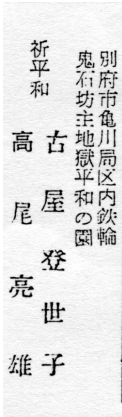 別府市亀川局区内鉄輪
鬼石坊主地獄平和の園
祈平和
古屋登世子
高尾亮雄